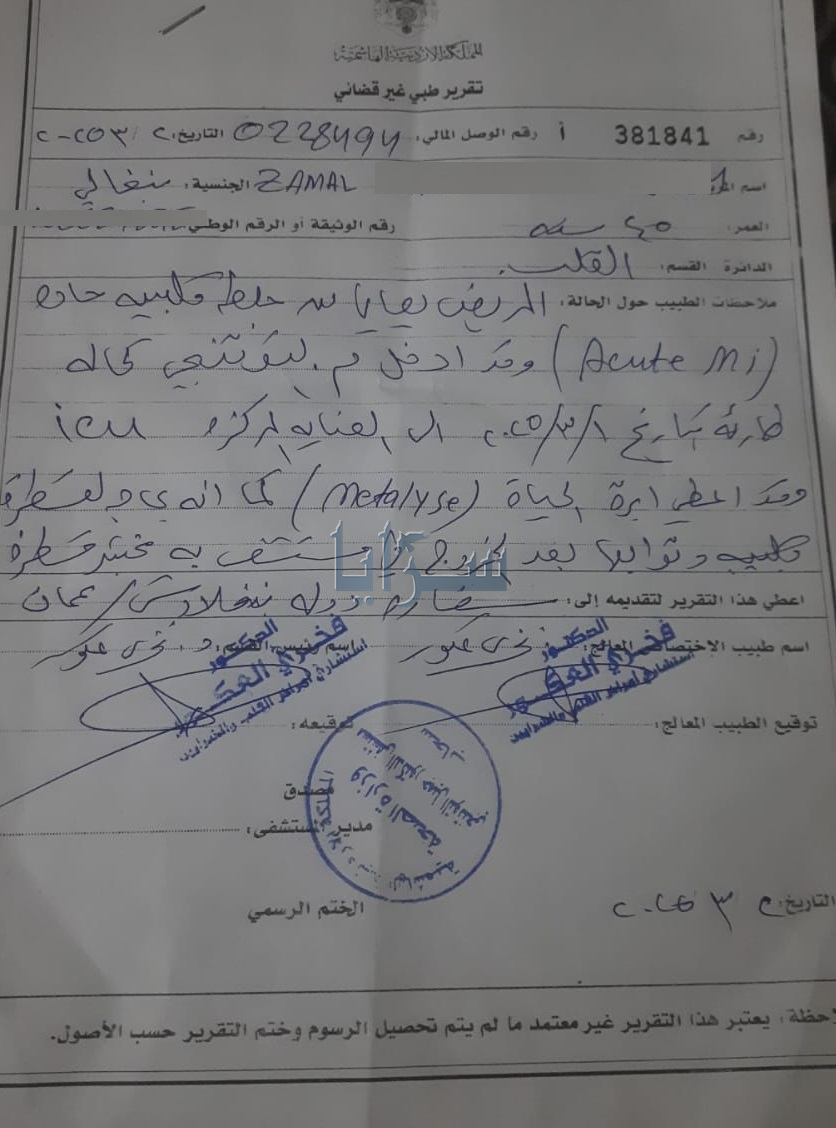 المملكة الأردنية الهاشمية
تقرير طبي غير قضائي
رقم 381841 أ رقم الوصل المالي: 0228494 التاريخ: ٢ / ٣ ٢٠٢٥
اسم ZAMAL الجنسية: بنغالي
العمر: ٤٥ سنه رقم الوثيقة أو الرقم الوطني:
الدائرة القسم: القلب
ملاحظات الطبيب حول الحالة: المريض يعاني من جلطه قلبيه حاده
(Acute Mi) وقد ادخل م. التوتنجي كحاله
طارئه بتاريخ ٢٠٢٥/٣/١ الى العناية المركزه icu
وقد اعطي ابرة الحياة (Metalyse) كما انه بحاجه لقسطرة
قلبيه وتوابعها بعد الخروج في مستشفى به مختبر قسطرة
سرايا
اعطي هذا التقرير لتقديمه إلى: سفارة دولة بنغلادش / عمان
اسم طبيب الإختصاص المعالج: فخري عكور اسم رئيس القسم: د. فخري عكور
الدكتور
فخري العكور
استشاري امراض القلب والشرايين
الدكتور
فخري العكور
استشاري امراض القلب والشرايين
توقيع الطبيب المعالج: توقيعه:
المملكة الأردنية الهاشمية
وزارة الصحة
مستشفى الدكتور جميل التوتنجي
سحاب
مصدق
مدير المستشفى:
التاريخ: ٢ ٣ ٢٠٢٥ الختم الرسمي
لاحظة : يعتبر هذا التقرير غير معتمد ما لم يتم تحصيل الرسوم وختم التقرير حسب الأصول.